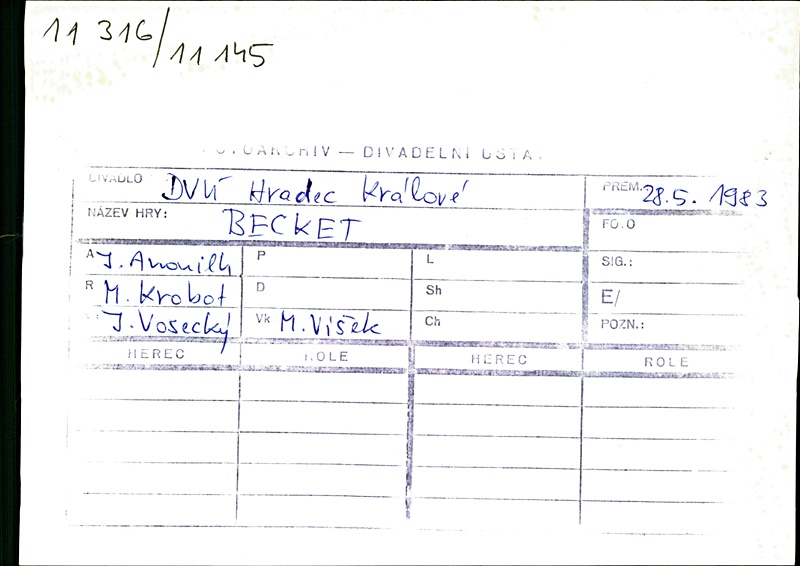 11 316/11 145
FOTOARCHIV — DIVADELNÍ ÚSTAV
DIVADLO DVÚ Hradec Králové PREM. 28.5. 1983
NÁZEV HRY: BECKET FOTO
A J. Anouilh P L SIG.:
R M. Krobot D Sh E/
J. Vosecký Vk M. Víšek Ch POZN.:
HEREC ROLE HEREC ROLE